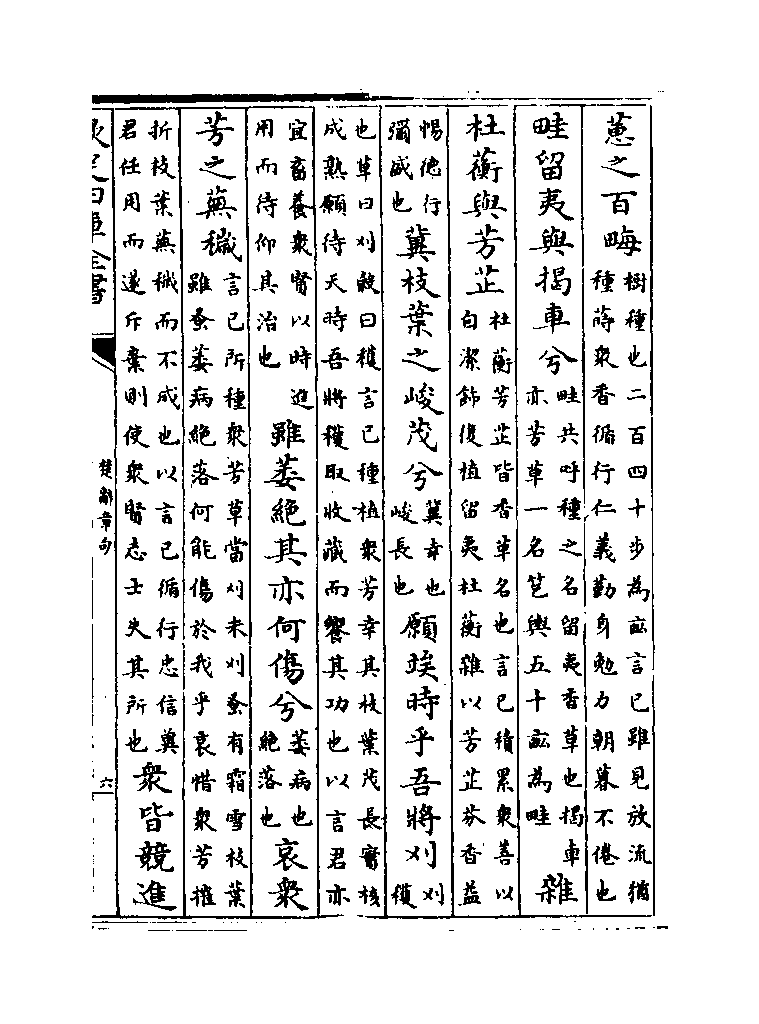 蕙之百畮樹種也二百四十步為畝言已雖見放流猶種蒔衆香循行仁義勤身勉力朝暮不倦也
畦留夷與揭車兮畦共呼種之名留夷香草也揭車亦芳草一名芞輿五十畝為畦雜
杜蘅與芳芷杜蘅芳芷皆香草名也言已積累衆善以自潔飾復植留夷杜蘅雜以芳芷芬香益
惕德行彌盛也冀枝葉之峻茂兮冀幸也峻長也願竢時乎吾將刈刈穫
也草曰刈穀曰穫言已種植衆芳幸其枝葉茂長實核成熟願待天時吾將穫取收藏而饗其功也以言君亦
宜畜養衆賢以時進用而待仰其治也雖萎絶其亦何傷兮萎病也絶落也哀衆
芳之蕪穢言已所種衆芳草當刈未刈蚤有霜雪枝葉雖蚤萎病絶落何能傷於我乎哀惜衆芳摧
折枝葉蕪穢而不成也以言已循行忠信冀君任用而遂斥棄則使衆賢志士失其所也衆皆競進
欽定四庫全書
楚辭章句
六